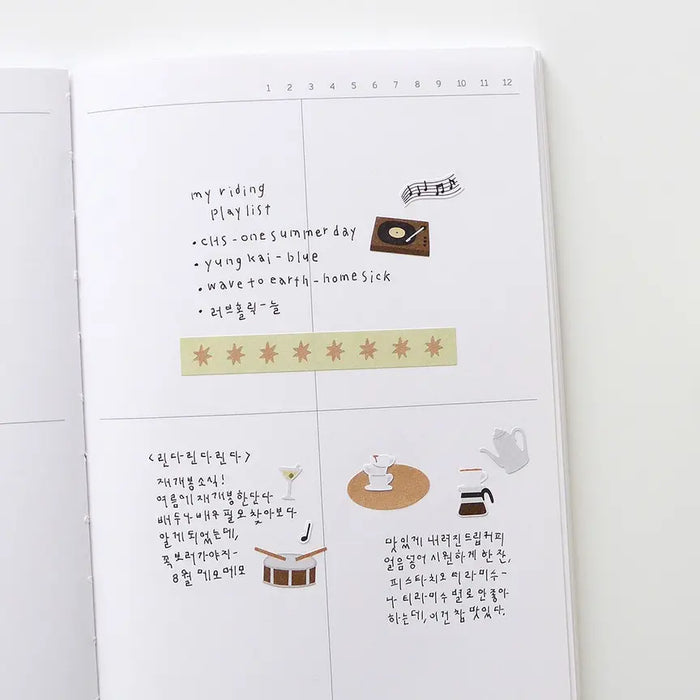 1 2 3 4 5 6 7 8 9 10 11 12
my riding
playlist
• CHS - one summer day
• yung kai - blue
• wave to earth - homesick
• 러브홀릭 - 놀
<린다린다린다>
재개봉소식!
여름에 재개봉한단다
배두나 배우 필모 찾아보다
알게되었는데,
꼭보러가야지~
8월 메모메모
맛있게 내려진 드립커피
얼음넣어 시원하게 한잔,
피스타치오 티라미수~
나 티라미수 별로 안좋아
하는데, 이건 참 맛있다.